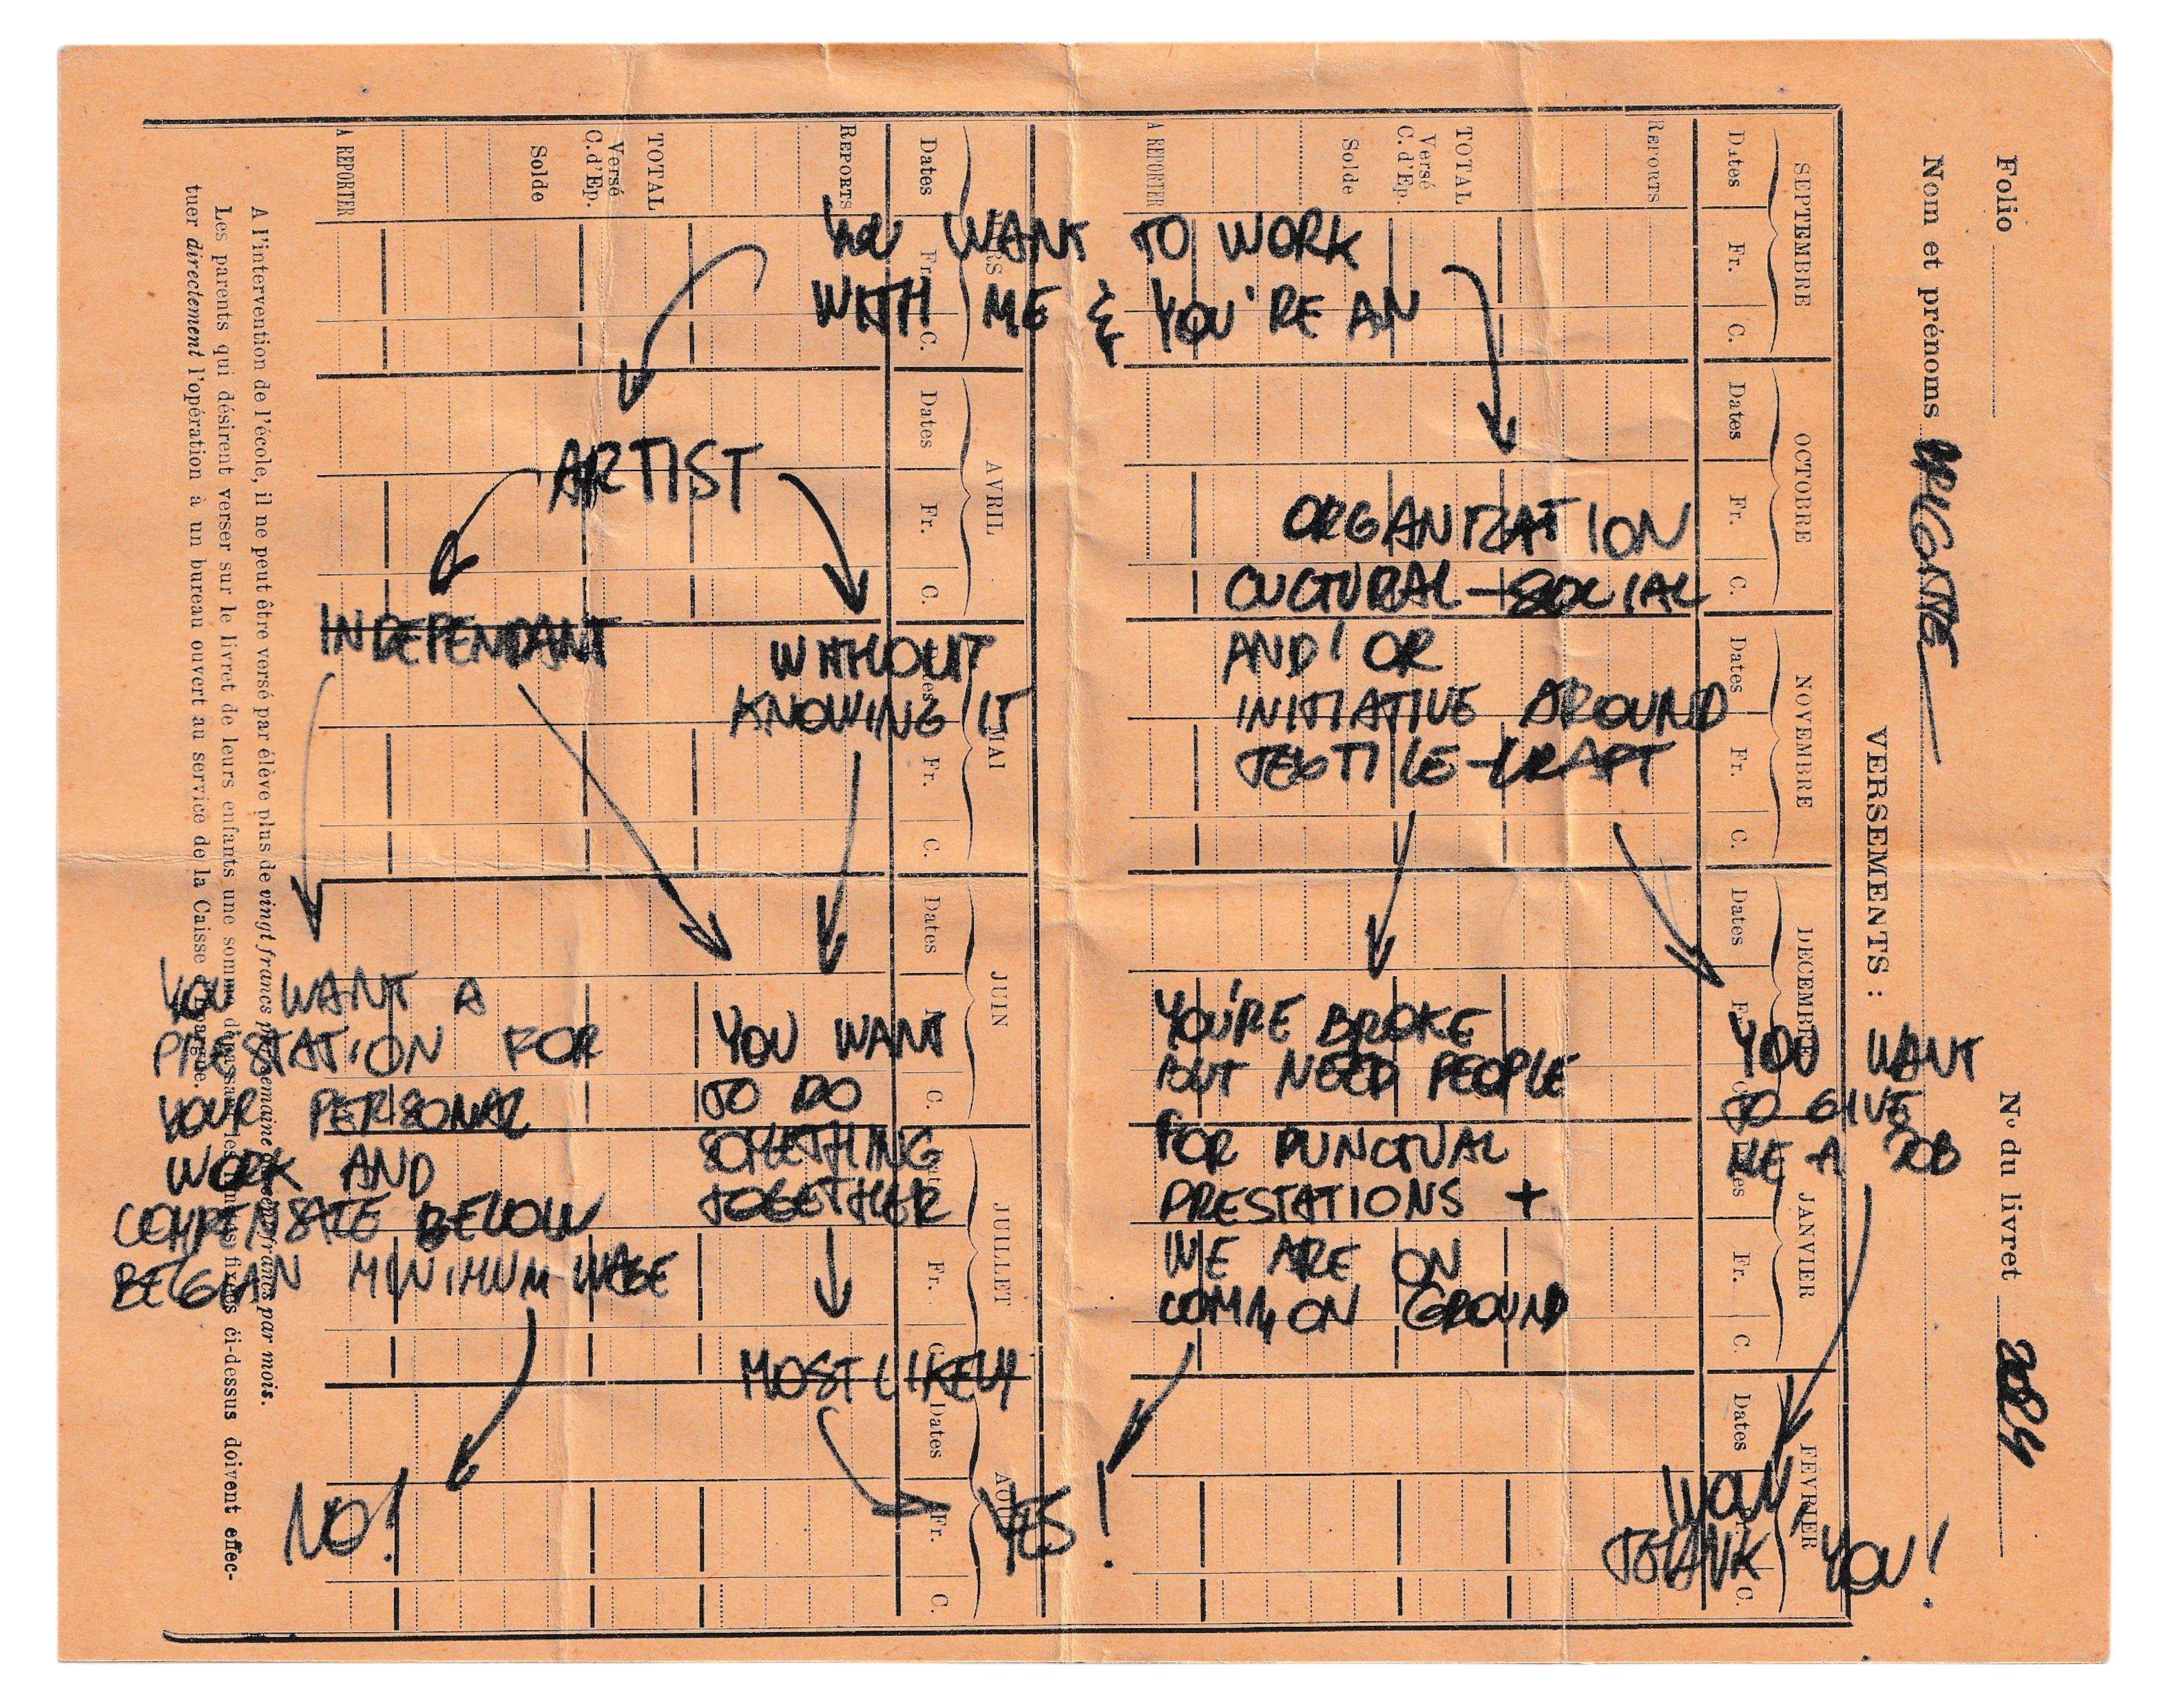 YOU WANT TO WORK
WITH ME & YOU'RE AN
ARTIST
INDEPENDANT
WITHOUT
KNOWING IT
ORGANIZATION
CULTURAL-SOCIAL
AND/OR
INITIATIVE AROUND
TEXTILE-CRAFT
YOU WANT A
PRESTATION FOR
YOUR PERSONAL
WORK AND
COMPENSATE BELOW
BELGIAN MINIMUM WAGE
YOU WANT
TO DO
SOMETHING
TOGETHER
YOU'RE BROKE
BUT NEED PEOPLE
FOR PUNCTUAL
PRESTATIONS +
WE ARE ON
COMMON GROUND
YOU WANT
TO GIVE
ME A JOB
MOST LIKELY
NO!
YES!
WOW,
THANK YOU!
Folio
Nom et prénoms
N° du livret 2024
VERSEMENTS :
SEPTEMBRE
OCTOBRE
NOVEMBRE
DECEMBRE
JANVIER
FÉVRIER
Dates Fr. C. Dates Fr. C. Dates Fr. C. Dates Fr. C. Dates Fr. C. Dates C.
REPORTS
TOTAL
Versé
C. d'Ep.
Solde
A REPORTER
AVRIL
MAI
JUIN
JUILLET
AOUT
Dates Fr. C. Dates Fr. C. Fr. C. Dates C. Fr. C. Dates Fr. C.
REPORTS
TOTAL
Versé
C. d'Ep.
Solde
A REPORTER
A l'intervention de l'école, il ne peut être versé par élève plus de vingt francs par semaine francs par mois.
Les parents qui désirent verser sur le livret de leurs enfants une somme dépassant les limites fixées ci-dessus doivent effec-
tuer directement l'opération à un bureau ouvert au service de la Caisse d'Epargne.